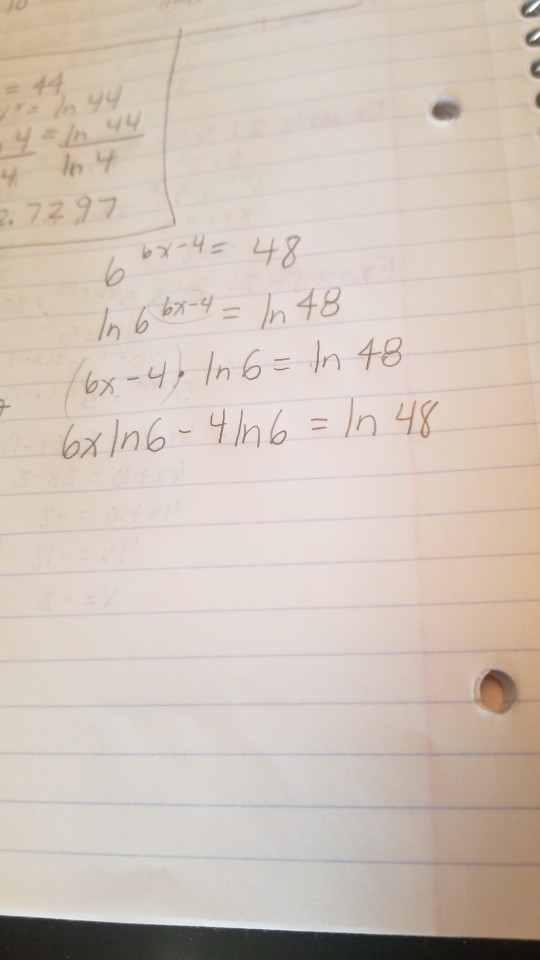 = 44
= ln 44
4 = ln 44
4 ln 4
2.7297
6^{6x-4} = 48
ln 6^{6x-4} = ln 48
(6x-4) · ln 6 = ln 48
6x ln 6 - 4 ln 6 = ln 48